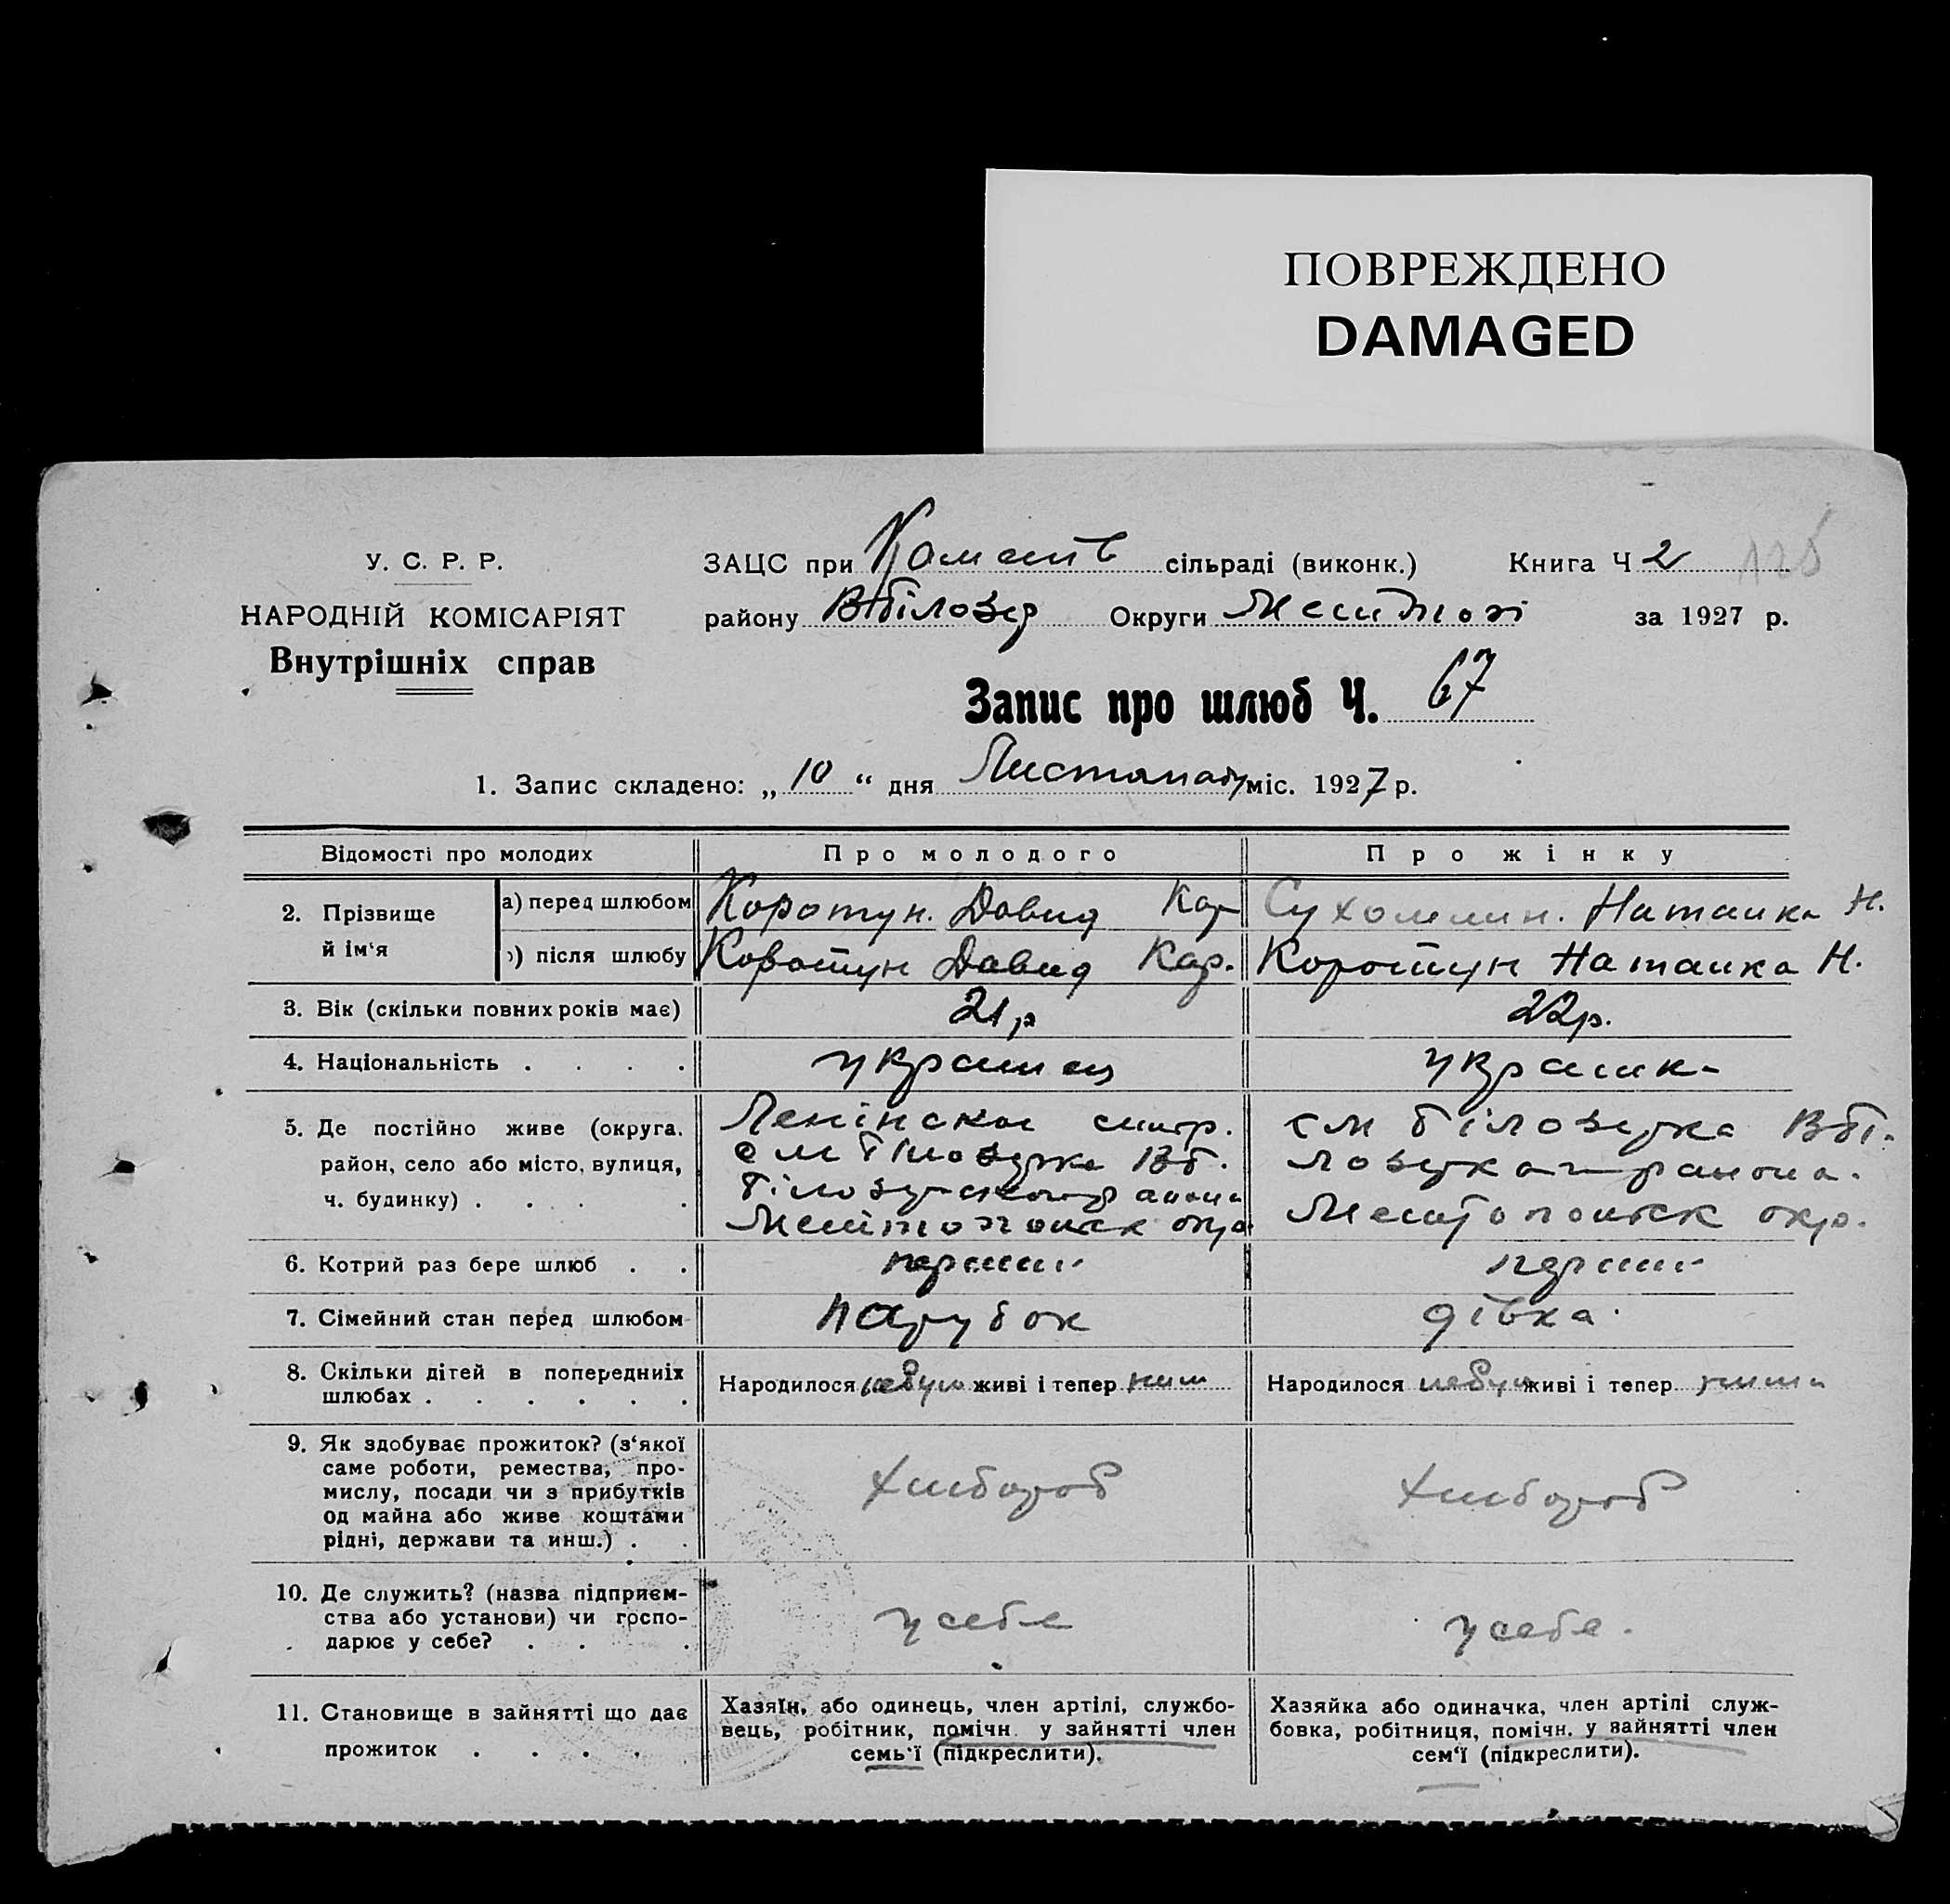 ПОВРЕЖДЕНО
DAMAGED
У. С. Р. Р.
НАРОДНІЙ КОМІСАРІЯТ
Внутрішніх справ
ЗАЦС при сільраді (виконк.) Книга Ч 2
району ВБілозер Округи Мелитопі за 1927 р.
Запис про шлюб Ч. 67
1. Запис складено: „ 10 “ дня Листопаду міс. 1927 р.
Відомості про молодих Про молодого Про жінку
2. Прізвище й ім‘я
а) перед шлюбом Коротун. Давид Кар Сухомлин. Наталка Н.
) після шлюбу Коротун Давид Кар. Коротун Наталка Н.
3. Вік (скільки повних років має) 21 р 22 р.
4. Національність . . . . українец україник-
5. Де постійно живе (округа, район, село або місто, вулиця, ч. будинку) . . . .
Ленінскої
Білозерка Вб.
Білозерского раиона
Мелітопольск окр
см Білозерка Вбі-
лозерка раиона.
Мелитопольск окр.
6. Котрий раз бере шлюб . . перший перший
7. Сімейний стан перед шлюбом парубок дівка.
8. Скільки дітей в попередниіх шлюбах . . . . . .
Народилося небуло живі і тепер Народилося небуло живі і тепер
9. Як здобуває прожиток? (з‘якої
саме роботи, ремества, про-
мислу, посади чи з прибутків
од майна або живе коштами
рідні, держави та инш.) . .
хлібороб хлібороб
10. Де служить? (назва підприєм-
ства або установи) чи госпо-
дарює у себе? . . .
у себе у себе.
11. Становище в зайнятті що дає
прожиток . . . .
Хазяїн, або одинець, член артілі, службо-
вець, робітник, помічн. у зайнятті член
семь‘ї (підкреслити).
Хазяйка або одиначка, член артілі служ-
бовка, робітниця, помічн. у зайнятті член
сем‘ї (підкреслити).